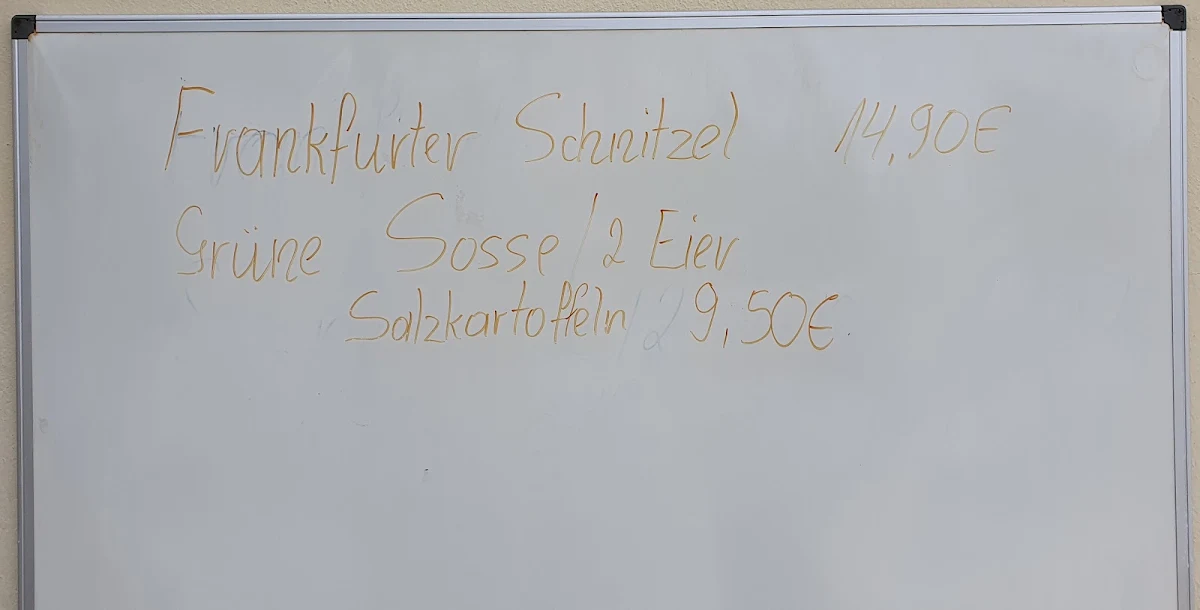 Frankfurter Schnitzel 14,90€
Grüne Sosse / 2 Eier
Salzkartoffeln 9,50€